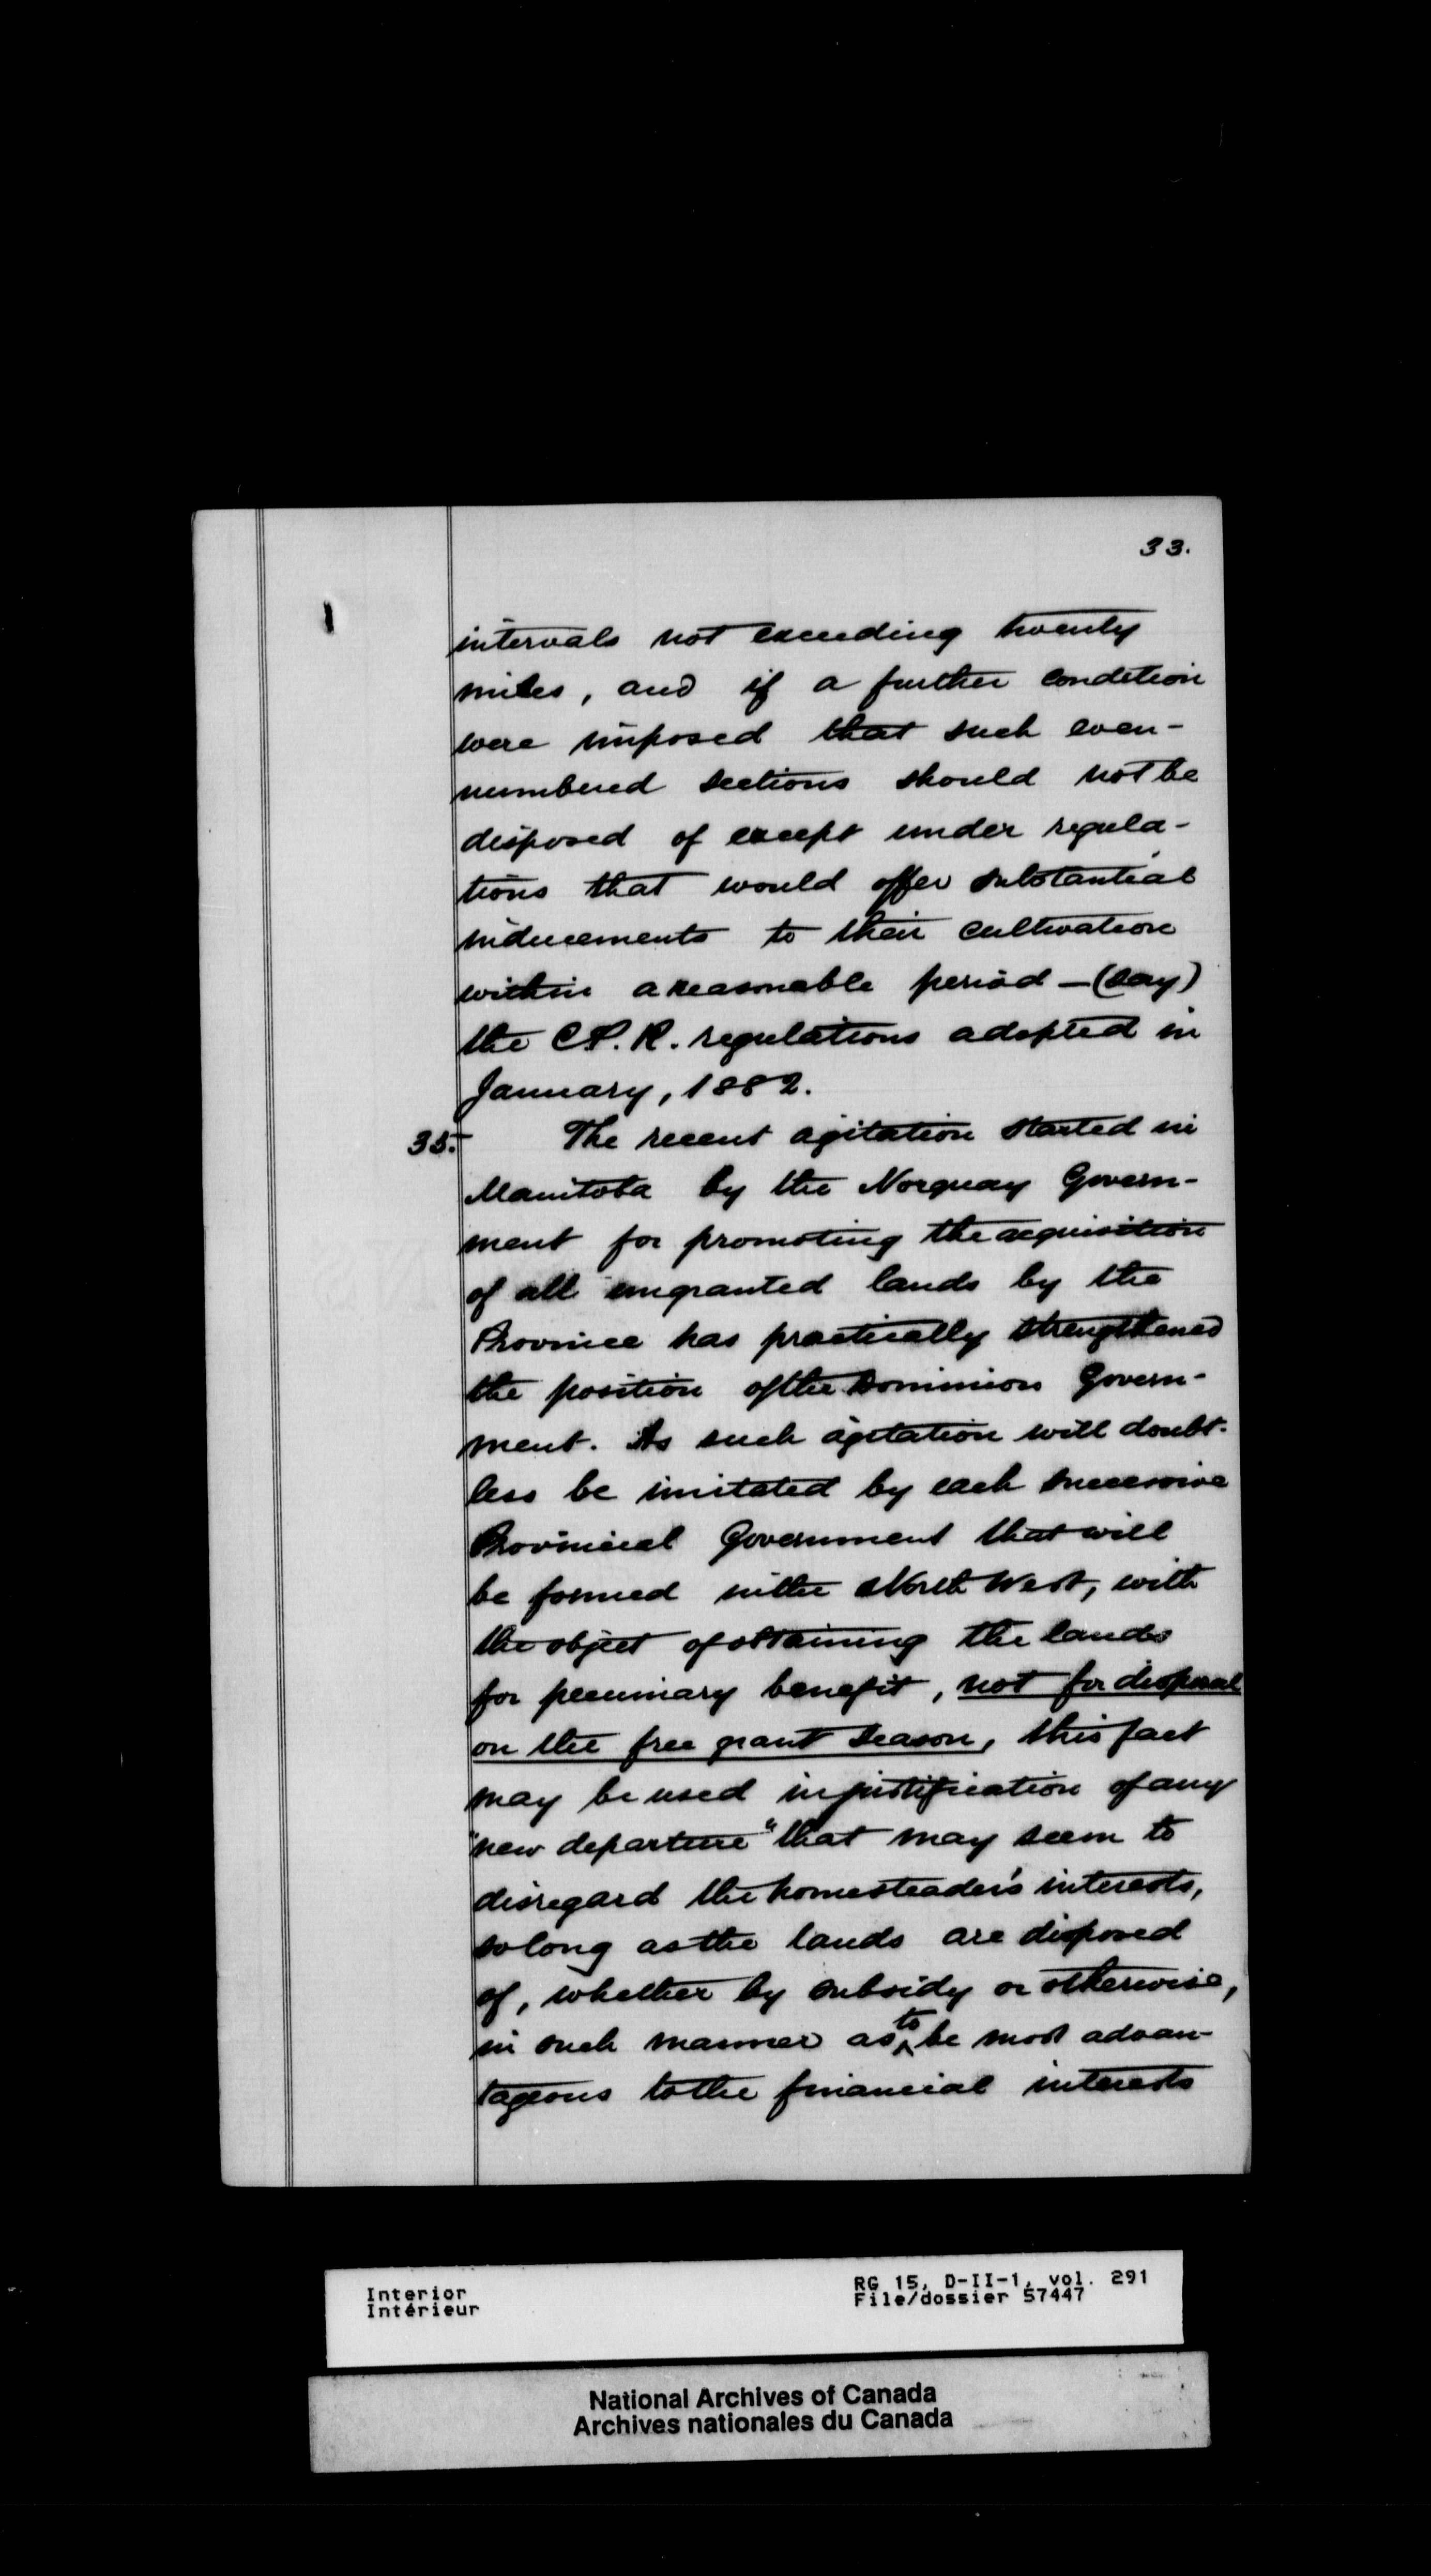 33.
intervals not exceeding twenty
miles, and if a further condition
were imposed that such even-
numbered sections should not be
disposed of except under regula-
tions that would offer substantial
inducements to their cultivation
within a reasonable period - (say)
the C.P.R. regulations adopted in
January, 1882.
35. The recent agitation started in
Manitoba by the Norquay Govern-
ment for promoting the acquisition
of all ungranted lands by the
Province has practically strengthened
the position of the Dominion Govern-
ment. As such agitation will doubt-
less be imitated by each successive
Provincial Government that will
be formed in the North West, with
the object of obtaining the lands
for pecuniary benefit, not for disposal
on the free grant season, this fact
may be used in justification of any
"new departure" that may seem to
disregard the homesteader's interests,
so long as the lands are disposed
of, whether by subsidy or otherwise,
in such manner as to be most advan-
tageous to the financial interests
Interior
Intérieur
RG 15, D-II-1, vol. 291
File/dossier 57447
National Archives of Canada
Archives nationales du Canada